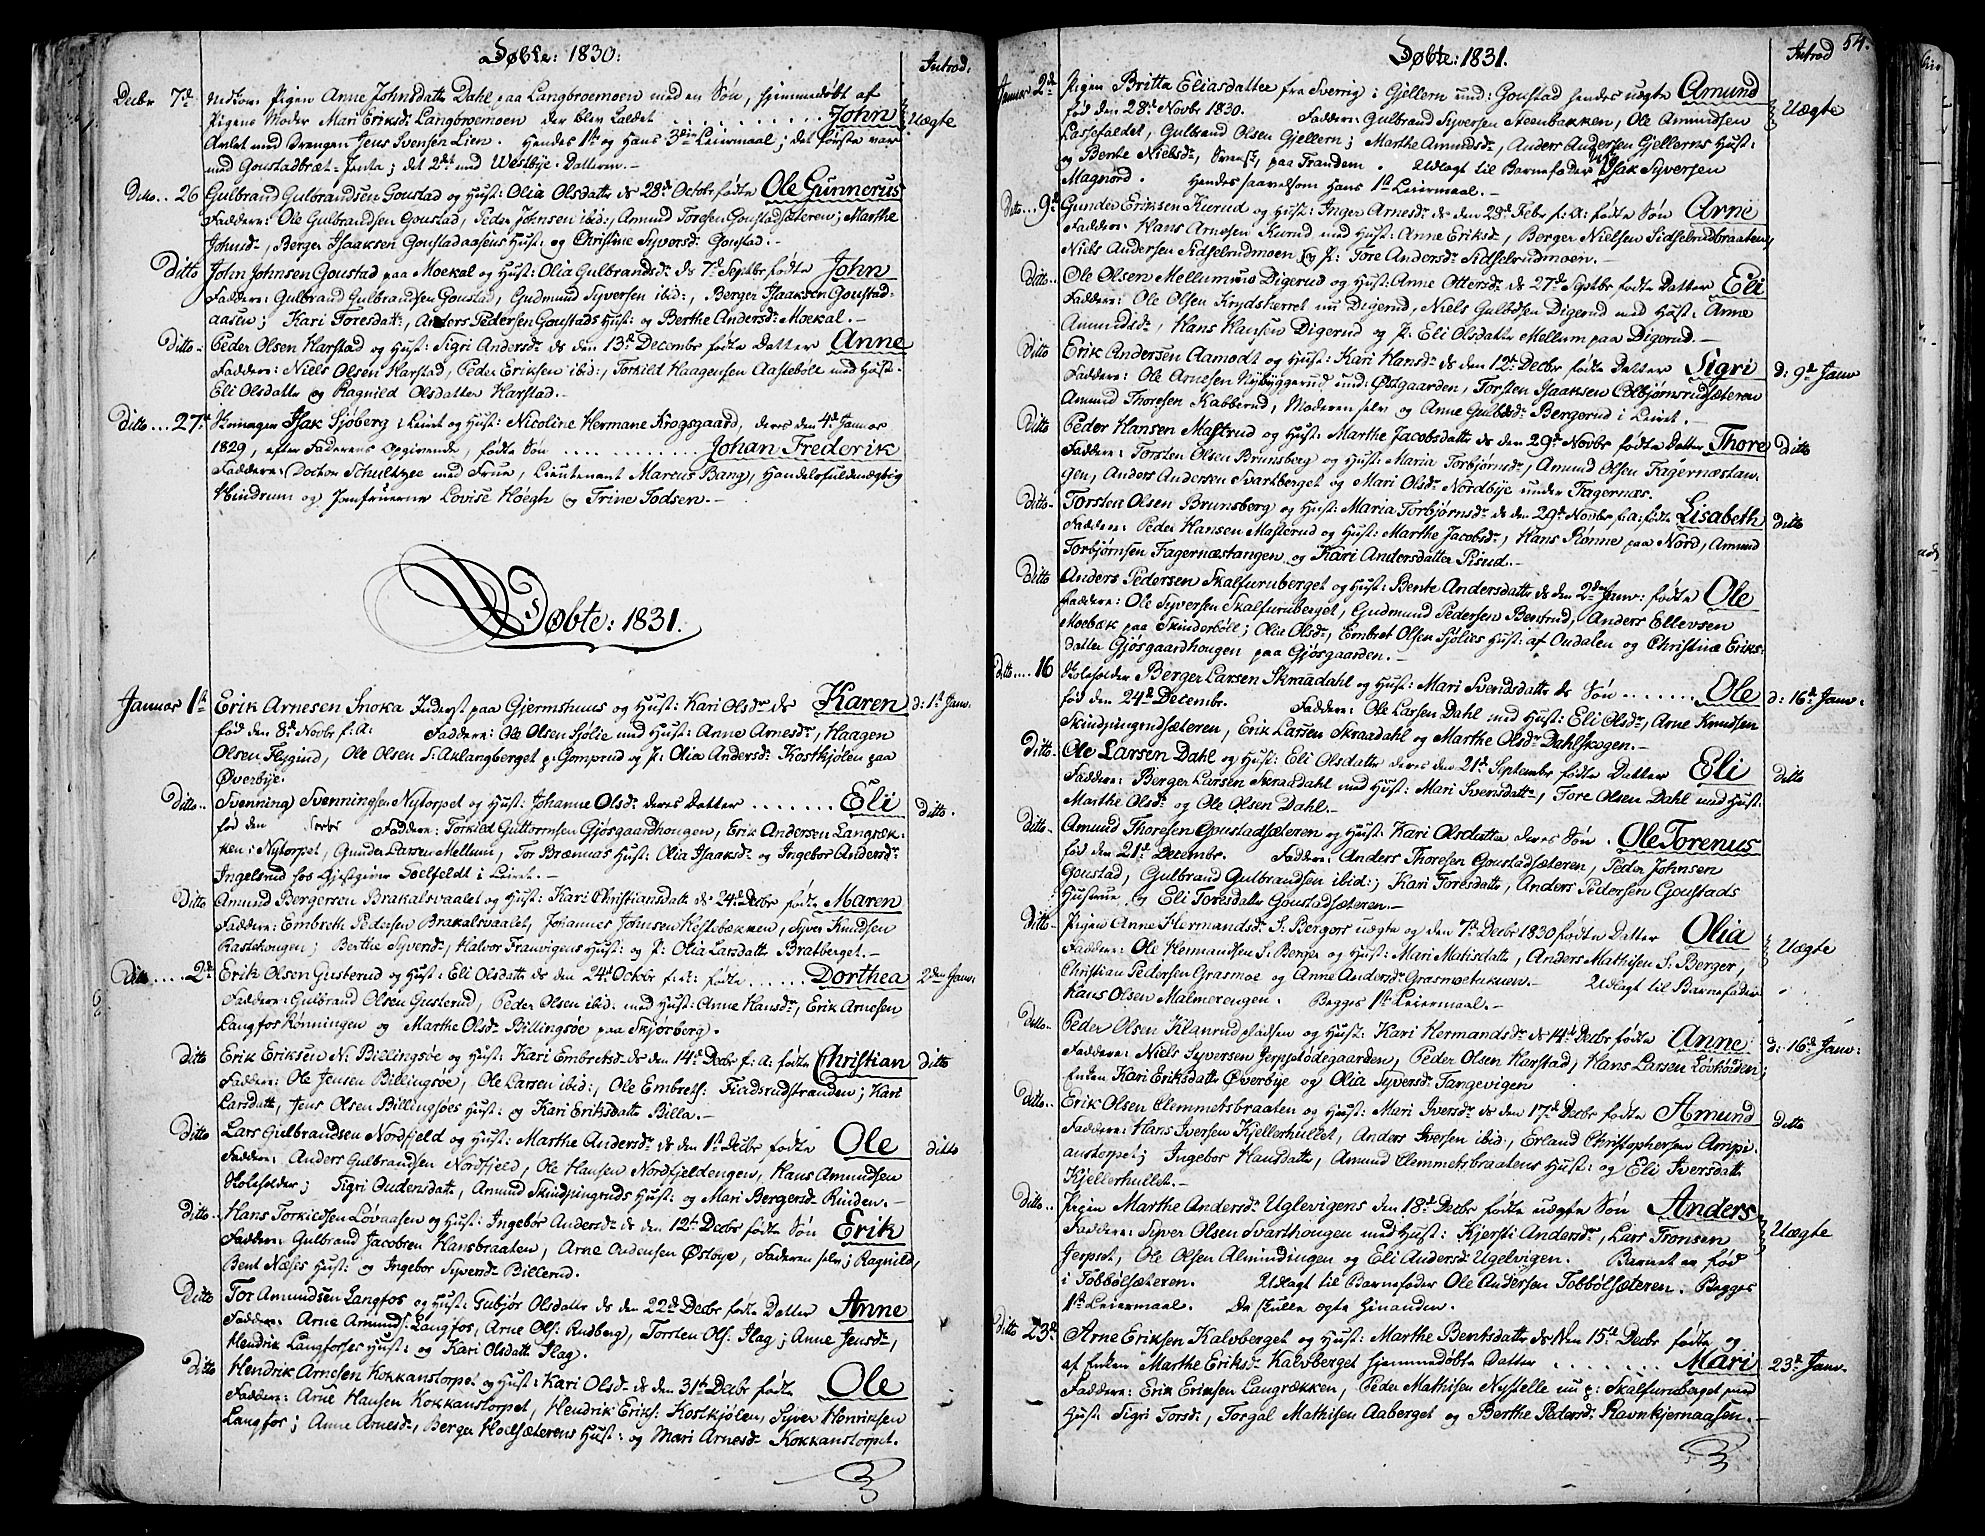 Døbte: 1830.
Introd:
Decbr 7d. Pigen Anne Johnsdatter Dahl paa Langbroemoen med en Søn, hjemmedøbt af
Pigens Moder Mari Eriksdr Langbroemoen der blev kaldet John Uægte
Avlet med Drengen Jens Svensen Lien. Hendes 1st og Hans 3die Leiermaal; det første var
med Goustadbræt-Jenta; det 2det med Westbye-Datteren.
Ditto 26 Gulbrand Gulbrandsen Goustad og Hust: Olia Olsdatter ds 28de Octobr fødte Ole Gunnerus
Faddere: Ole Gulbrandsen Goustad, Peder Johnsen ibid:, Amund Toresen Goustadsæteren; Marthe
Johnsdr, Berger Isaaksen Goustadaasens Hust: og Christine Syversdr Goustad.
Ditto John Johnsen Goustad paa Moekal og Hust: Olia Gulbrandsdr ds 7d Septbr fødte John
Faddere: Gulbrand Gulbrandsen Goustad, Gudmund Syversen ibid:, Berger Isaaksen Goustad-
aasen; Kari Toresdattr, Anders Pedersen Goustads Hust: og Berthe Andersdr Moekal.
Ditto Peder Olsen Harstad og Hust: Sigri Andersdr ds den 13de Decembr fødte Datter Anne
Faddere: Niels Olsen Harstad, Peder Eriksen ibid:, Torkild Haagensen Aastebøle med Hust:
Eli Olsdatter og Ragnild Olsdatter Harstad.
Ditto 27d Isak Sjøberg i Leiret og Hust: Nicoline Hermane Krogsgaard, deres den 4de Januar
1829, efter Faderens Opgivende, fødte Søn Johan Frederik
Faddere: Doctor Schultzee med Frue, Lieutenant Marcus Bang, Handelsfuldmægtig
Hindrum og Jomfruerne Lovise Høegh og Trine Todsen.
Døbte: 1831.
Januar 1st Erik Arnesen Snoka Inderst paa Gjermshuus og Hust: Kari Olsdr ds Karen d: 1st Janv.
fød den 8d Novbr f: A: Faddere: Ole Olsen Sjølie med Hust: Anne Arnesdr, Haagen
Olsen Flygind, Ole Olsen S: Aklangberget p: Gomprud og P: Olia Andersdr Kostkjølen paa
Øverbye.
Ditto Svenning Svenningsen Nytorpet og Hust: Johanne Olsdr deres Datter Eli ditto.
fød den Faddere: Torkild Guttormsen Gjøsgaardhougen, Erik Andersen Langræk-
ken i Nytorpet, Gunder Larsen Mellum, Tor Brænnas Hust: Olia Isaaksdr og Ingebor Andersdr
Ingelsrud hos Gjestgiver Toelfeldt i Leiret.
Ditto Amund Bergersen Brakalsvaalet og Hust: Kari Christiansdattr ds 24d Decbr fødte Maren
Faddere: Embreth Pedersen Brakalsvaalet, Johannes Johnsen Hestebækken, Syver Knudsen
Rastehougen; Berthe Syversdr, Halvor Franvigens Hust: og P: Olia Larsdattr Bratberget.
Ditto 2d Erik Olsen Gusterud og Hust: Eli Olsdattr ds den 24d Octobr f: A: fødte Dorthea 2den Janv.
Faddere: Gulbrand Olsen Gusterud, Peder Olsen ibid: med Hust: Anne Hansdr, Erik Arnesen
Langfos Rønningen og Marthe Olsdr Billingsøe paa Skjørberg.
Ditto Erik Eriksen N: Billingsøe og Hust: Kari Embretsdr ds den 14d Decbr f: A: fødte Christian ditto
Faddere: Ole Jensen Billingsøe, Ole Larsen ibid:, Ole Embrets: Fiadsrudstranden; Kari
Larsdattr, Jens Olsen Billingsøes Hust: og Kari Eriksdattr Billa.
Ditto Lars Gulbrandsen Nordfjeld og Hust: Marthe Andersdr ds den 1st Decbr fødte Ole ditto
Faddere: Anders Gulbrandsen Nordfjeld, Ole Hansen Nordfjeldengen, Hans Amundsen
Skoleholder; Sigri Oudensdattr, Amund Skindpungruds Hust: og Mari Bergersdr Rinden.
Ditto Hans Torkildsen Løvaasen og Hust: Ingebor Andersdr ds den 12te Decbr fødte Søn Erik
Faddere: Gulbrand Jacobsen Hansbraaten, Arne Oudensen Østbye, Faderen selv; Ragnild,
Bent Næses Hust: og Ingebor Syversdr Billerud.
Ditto Tor Amundsen Langfos og Hust: Gubjør Olsdatter ds den 22d Decbr fødte Datter Anne
Faddere: Arne Amunds: Langfos, Arne Ols: Rudberg, Torsten Ols: Slag; Anne Jensdr,
Hendrik Langfosses Hust: og Kari Olsdattr Slag.
Ditto Hendrik Arnesen Kokkanstorpet og Hust: Kari Olsdr ds den 31te Decbr fødte Ole
Faddere: Arne Hansen Kokkanstorpet, Hendrik Eriks: Kostkjølen, Syver Henriksen
Langfos; Anne Arnesdr, Berger Hoelsæterens Hust: og Mari Arnesdr Kokkanstorpet.
Døbte: 1831.
Introd
54.
Januar 2d Pigen Britta Eliasdatter fra Sverrig i Gjellern und: Goustad hendes uægte Amund Uægte
fød den 28d Novbr 1830. Faddere: Gulbrand Syversen Steenbakken, Ole Amundsen
Lassefaldet, Gulbrand Olsen Gjellern; Marthe Amundsdr, Anders Andersen Gjellerns Hust:
og Bente Nielsdr, Svensk, paa Trandem. Udlagt til Barnefader Isak Syversen
Magnord. Hendes saavelsom Hans 1st Leiermaal.
Ditto 9d Gunder Eriksen Kurud og Hust: Inger Arnesdr ds den 28d Febr f: A: fødte Søn Arne
Faddere: Hans Arnesen Kurud med Hust: Anne Eriksdr, Berger Nielsen Sidselrudbraaten,
Niels Andersen Sidselrudmoen og P: Tore Andersdr Sidselrudmoen.
Ditto Ole Olsen Mellum nu Digerud og Hust: Anne Ottersdr ds 27d Septbr fødte Datter Eli
Faddere: Ole Olsen Krydskerret nu Digerud, Niels Gulbdsen Digerud med Hust: Anne
Amundsdr, Hans Hansen Digerud og P: Eli Olsdatter Mellum paa Digerud.
Ditto Erik Andersen Aamodt og Hust: Kari Hansdr ds den 12te Decbr fødte Datter Sigri d: 9d Janv
Faddere: Ole Arnesen Nybyggerud und: Østgaarden, Torsten Isaaksen Colbjørnrudsæteren
Amund Thoresen Kabberud, Moderen selv og Anne Gulbdsdr Bergerud i Leiret.
Ditto Peder Hansen Mastrud og Hust: Marthe Jacobsdattr ds den 29d Novbr fødte Datter Thore ditto
Faddere: Torsten Olsen Brunsberg og Hust: Maria Torbjørnsdr, Amund Olsen Fagernæstan-
gen, Anders Andersen Svartberget og Mari Olsdr Nordbye under Fagernæs.
Ditto Torsten Olsen Brunsberg og Hust: Maria Torbjørnsdr ds den 29d Novbr f: A: fødte Lisabeth ditto
Faddere: Peder Hansen Masterud og Hust: Marthe Jacobsdr, Hans Rønne paa Nord, Amund
Torbjørnsen Fagernæstangen og Kari Andersdatter Sisud.
Ditto Anders Pedersen Skalfuruberget og Hust: Bente Andersdattr ds den 2den Janv: fødte Ole
Faddere: Ole Syversen Skalfuruberget, Gudmund Pedersen Bentrud, Anders Ellevsen
Moebæk paa Skinderbøl; Olia Olsdr, Embret Olsen Sjølies Hust: af Oudalen og Christine Eriks-
datter Gjøsgaardhougen paa Gjøsgaarden.
Ditto 16 Skoleholder Berger Larsen Skraadahl og Hust: Mari Svendsdattr ds Søn Ole d: 16d Janv:
fød den 24d Decembr. Faddere: Ole Larsen Dahl med Hust: Eli Olsdr, Arne Knudsen
Skindpungrudsæteren, Erik Larsen Skraadahl og Marthe Olsdr Dahlskogen.
Ditto Ole Larsen Dahl og Hust: Eli Olsdatter deres den 21d Septembr fødte Datter Eli ditto
Faddere: Berger Larsen Skraadahl med Hust: Mari Svensdattr, Tore Olsen Dahl med Hust:
Marthe Olsdr og Ole Olsen Dahl.
Ditto Amund Thoresen Goustadsæteren og Hust: Kari Olsdatter deres Søn Ole Torenus
fød den 21d Decembr. Faddere: Anders Thoresen Goustadsæteren, Peder Johnsen
Goustad, Gulbrand Gulbrandsen ibid:; Kari Toresdattr, Anders Pedersen Goustads
Hustrue og Eli Toresdatter Goustadsæteren.
Ditto Pigen Anne Hermandsdr S: Bergers uægte og den 7d Decbr 1830 fødte Datter Olia Uægte
Faddere: Ole Hermandsen S: Berger og Hust: Mari Matisdattr, Anders Mathisen S: Berger,
Christian Pedersen Grasmoe og Anne Andersdr Grasmoetunuen. Udlagt til Barnefader
Hans Olsen Malmerengen. Begges 1st Leiermaal.
Ditto Peder Olsen Klanrudpladsen og Hust: Kari Hermandsdr ds 14d Decbr fødte Anne d: 16d Janv:
Faddere: Niels Syversen Jerpplødegaarden, Peder Olsen Harstad, Hans Larsen Løvhøiden;
Enken Kari Eriksdattr Øverbye og Olia Syversdr Tangevigen
Ditto Erik Olsen Clemmetsbraaten og Hust: Mari Iversdr ds den 17d Decbr fødte Amund ditto
Faddere: Hans Iversen Kjellerhullet, Anders Iversen ibid:, Erland Christophersen Ampi-
anstorpet; Ingebor Hansdattr, Amund Clemmetsbraatens Hust: og Eli Iversdattr
Kjellerhullet.
Ditto Pigen Marthe Andersdr Uglevigens den 18d Decbr fødte uægte Søn Anders Uægte
Faddere: Syver Olsen Svarthougen med Hust: Kjersti Andersdr, Lars Tronsen
Jerpset, Ole Olsen Almindingen og Eli Andersdr Ugelvigen. Barnet er fød
i Tobbølsæteren. Udlagt til Barnefader Ole Andersen Tobbølsæteren. Begges
1st Leiermaal. De skulle ægte hinanden.
Ditto 23d Arne Eriksen Kalvberget og Hust: Marthe Bentsdattr ds den 15d Decbr fødte og
af Enken Marthe Eriksdr Kalvberget hjemmedøbte Datter Mari 23d Janv.
Faddere: Erik Eriksen Langrækken, Peder Mathisen Nystelle nu p: Skalfuruberget med
Hust: Sigri Torsdr, Torgal Mathisen Aaberget og Berthe Pedersdr Ravnkjernaasen.